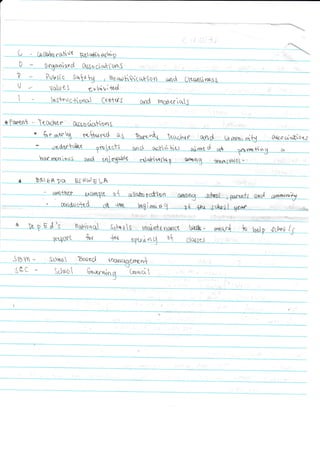 C - Collaborative Relationship
O - Organized associations
P - Public safety, Beautification and Cleanliness
V - Values exhibited
I - Instructional Centers and materials
• Parent - Teacher associations
• formerly referred as Parents teacher and community associations
- undertake projects and activities aimed at promoting a
harmonious and enjoyable relationship among
• BRIGADA ESKWELA
- another example of collaboration among school, parents and community
- conducted at the beginning of the school year
• DepEd's National schools maintenance week - meant to help schools
prepare for the opening of classes
SBM - School Based management
SGC - School Governing Council